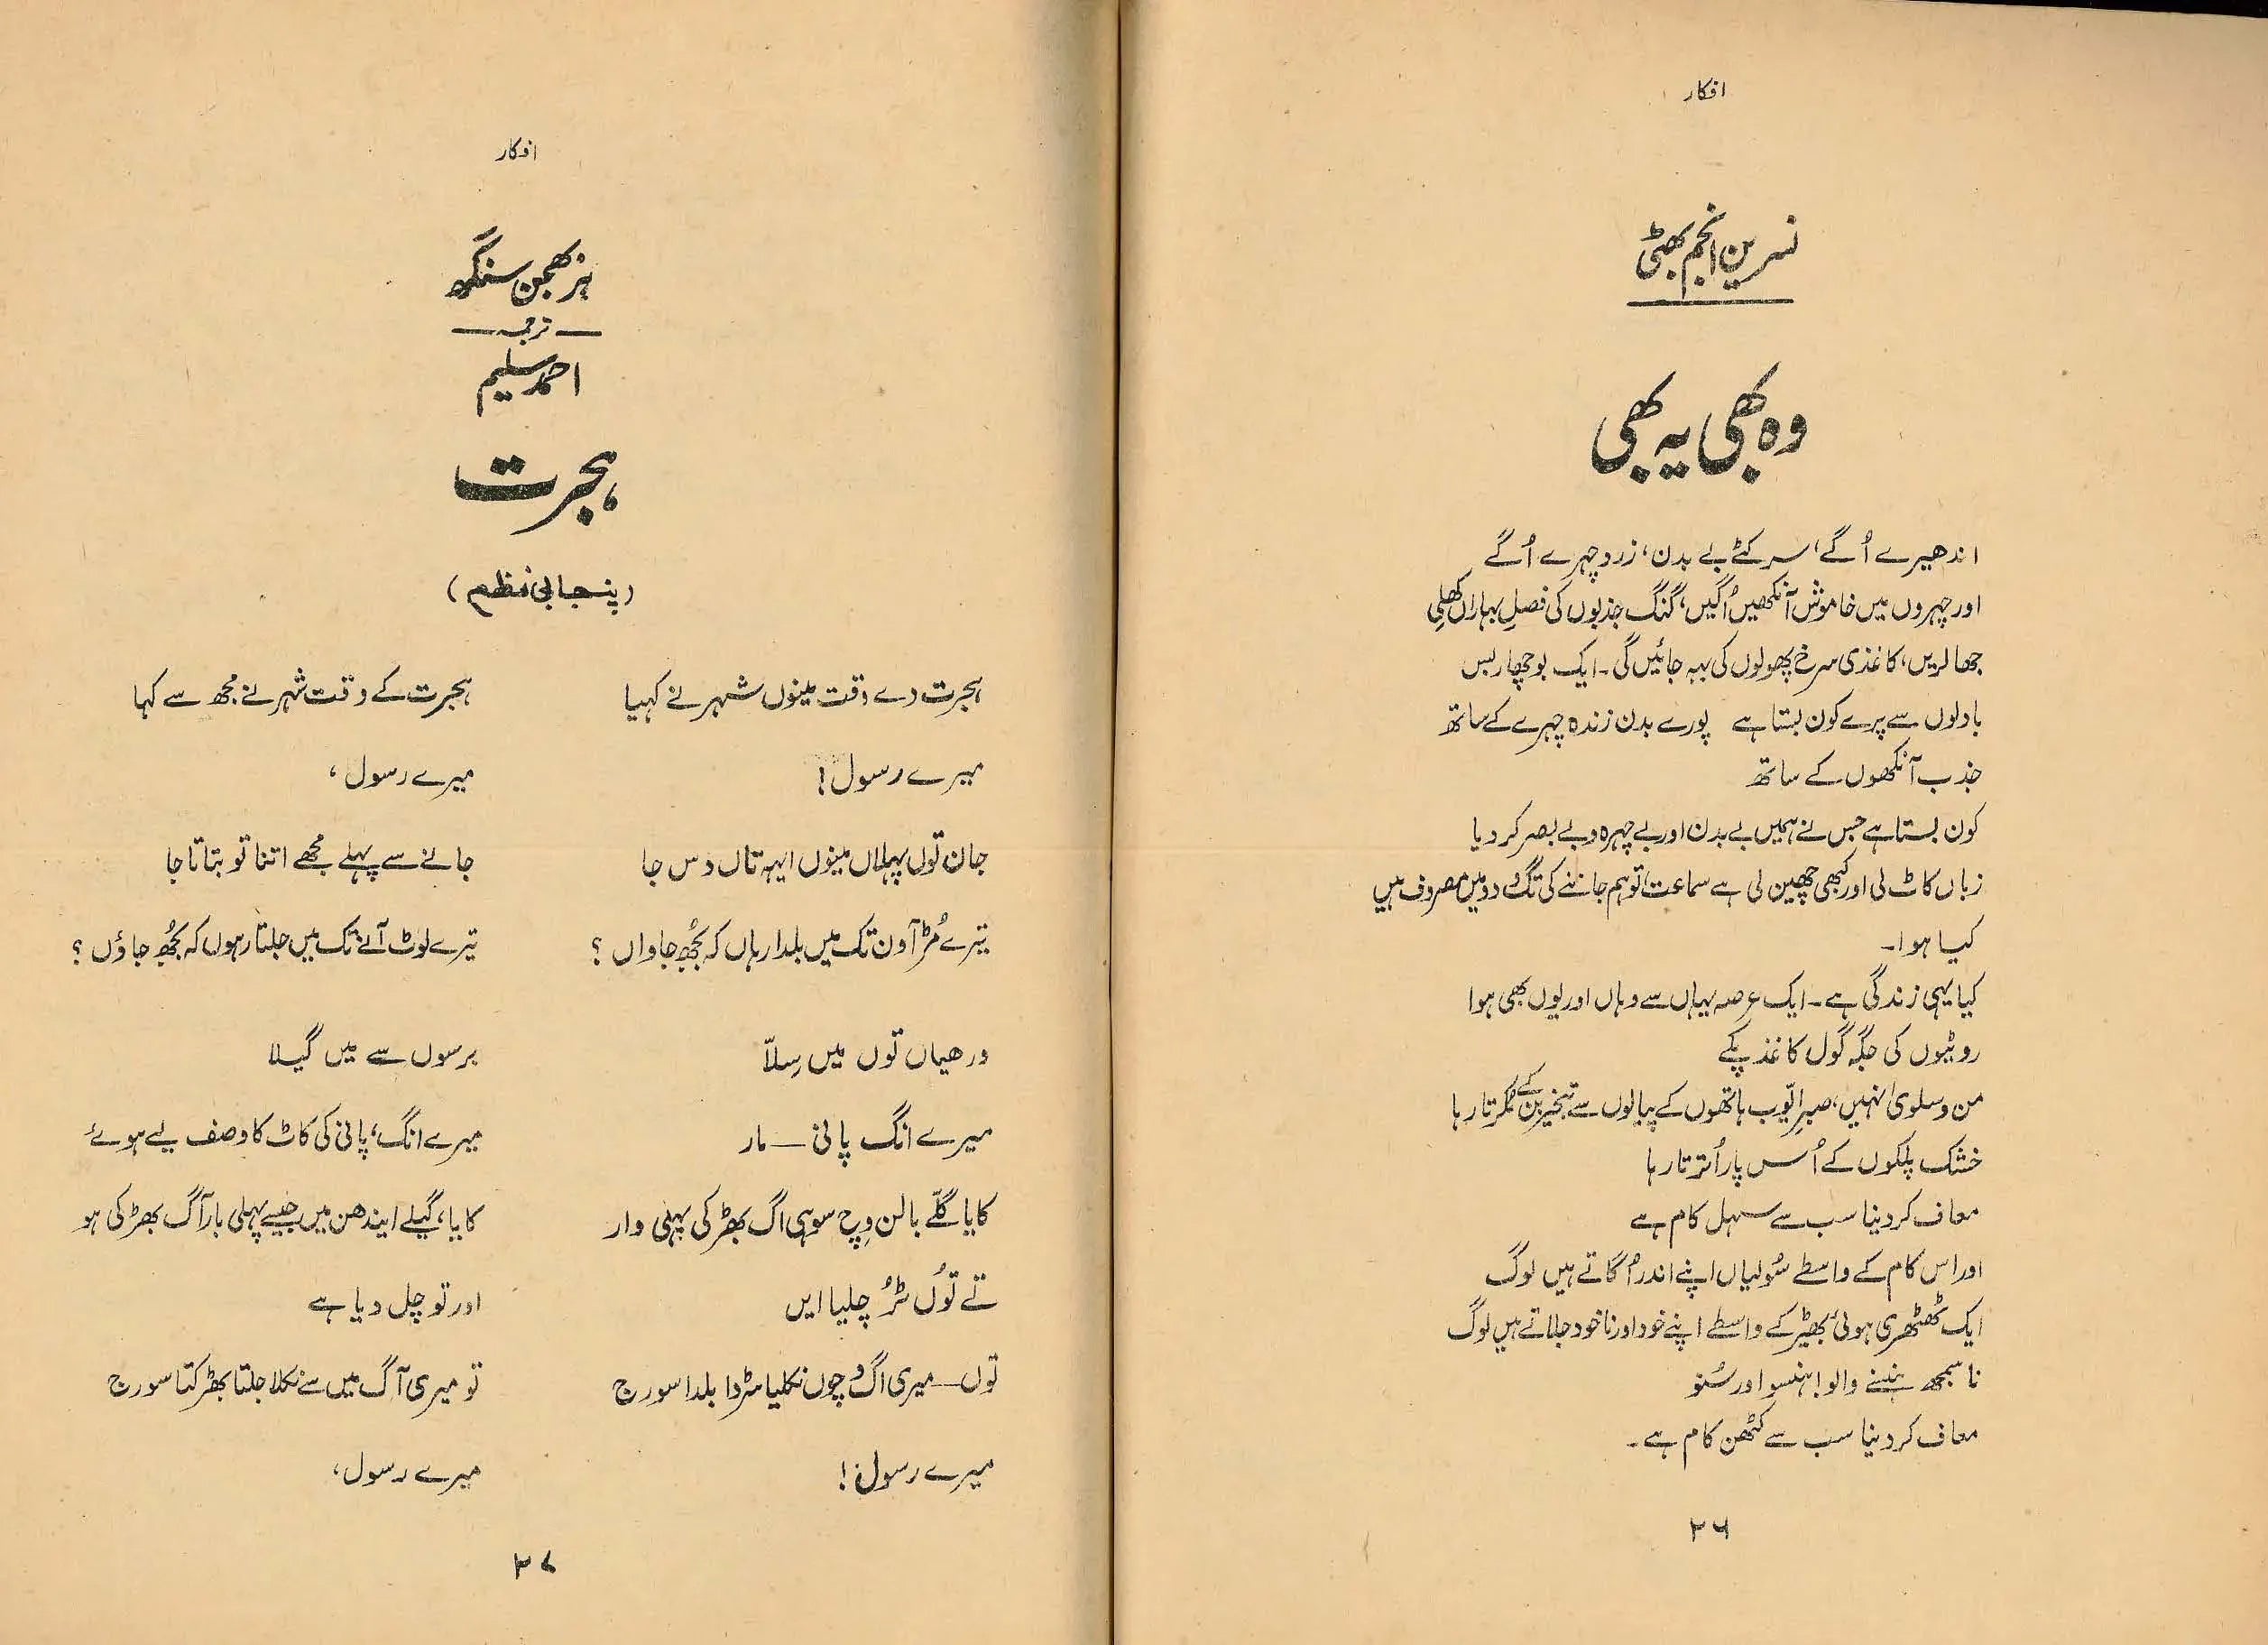 افکار
نسرین انجم بھٹی
وہ بھی یہ بھی
اندھیرے اُگے، سر کٹے بے بدن، زرد چہرے اُگے
اور چہروں میں خاموش آنکھیں اُگیں، گنگ جذبوں کی فصلِ بہاراں کھلی
جھالریں، کاغذی سرخ پھولوں کی بہہ جائیں گی۔ ایک بوچھار بس
بادلوں سے پرے کون بستا ہے پورے بدن زندہ چہرے کے ساتھ
جذب آنکھوں کے ساتھ
کون بستا ہے جس نے ہمیں بے بدن اور بے چہرہ و بے بصر کر دیا
زباں کاٹ لی اور کبھی چھین لی ہے سماعت، تو ہم جاننے کی تگ و دو میں مصروف ہیں
کیا ہوا۔
کیا یہی زندگی ہے۔ ایک عرصہ یہاں سے وہاں اور یوں بھی ہوا
روٹیوں کی جگہ گول کاغذ پکے
من و سلویٰ نہیں، صبرِ ایّوب ہاتھوں کے پیالوں سے تبخیر بن کے مُکرتا رہا
خشک پلکوں کے اُس پار اُترتا رہا
معاف کر دینا سب سے سہل کام ہے
اور اس کام کے واسطے سُولیاں اپنے اندر اُگاتے ہیں لوگ
ایک ٹھٹھری ہوئی بھیڑ کے واسطے اپنے خود اور ناخود جلاتے ہیں لوگ
ناسمجھ ہنسنے والو! ہنسو اور سُنو
معاف کر دینا سب سے کٹھن کام ہے۔
۲۶
افکار
ہربھجن سنگھ
— ترجمہ —
احمد سلیم
ہجرت
(پنجابی نظم)
ہجرت دے وقت مینوں شہر نے کہیا
میرے رسول!
جان توں پہلاں مینوں ایہہ تاں دس جا
تیرے مُڑ آون تک میں بلدا رہاں کہ بُجھ جاواں ؟
ورھیاں توں میں سِلّا
میرے انگ پانی — مار
کایا گلّے بالن وِچ سوہی اگ بھڑکی پہلی وار
تے توُں ٹرُ چلیا ایں
توں — میری اگ وچوں نکلیا سڑدا بلدا سورج
میرے رسول!
ہجرت کے وقت شہر نے مجھ سے کہا
میرے رسول،
جانے سے پہلے مجھے اتنا تو بتاتا جا
تیرے لوٹ آنے تک میں جلتا رہوں کہ بُجھ جاؤں ؟
برسوں سے میں گیلا
میرے انگ، پانی کی کاٹ کا وصف لیے ہوئے
کایا، گیلے ایندھن میں جیسے پہلی بار آگ بھڑکی ہو
اور تو چل دیا ہے
تو میری آگ میں سے نکلا جلتا بھڑکتا سورج
میرے رسول،
۲۷